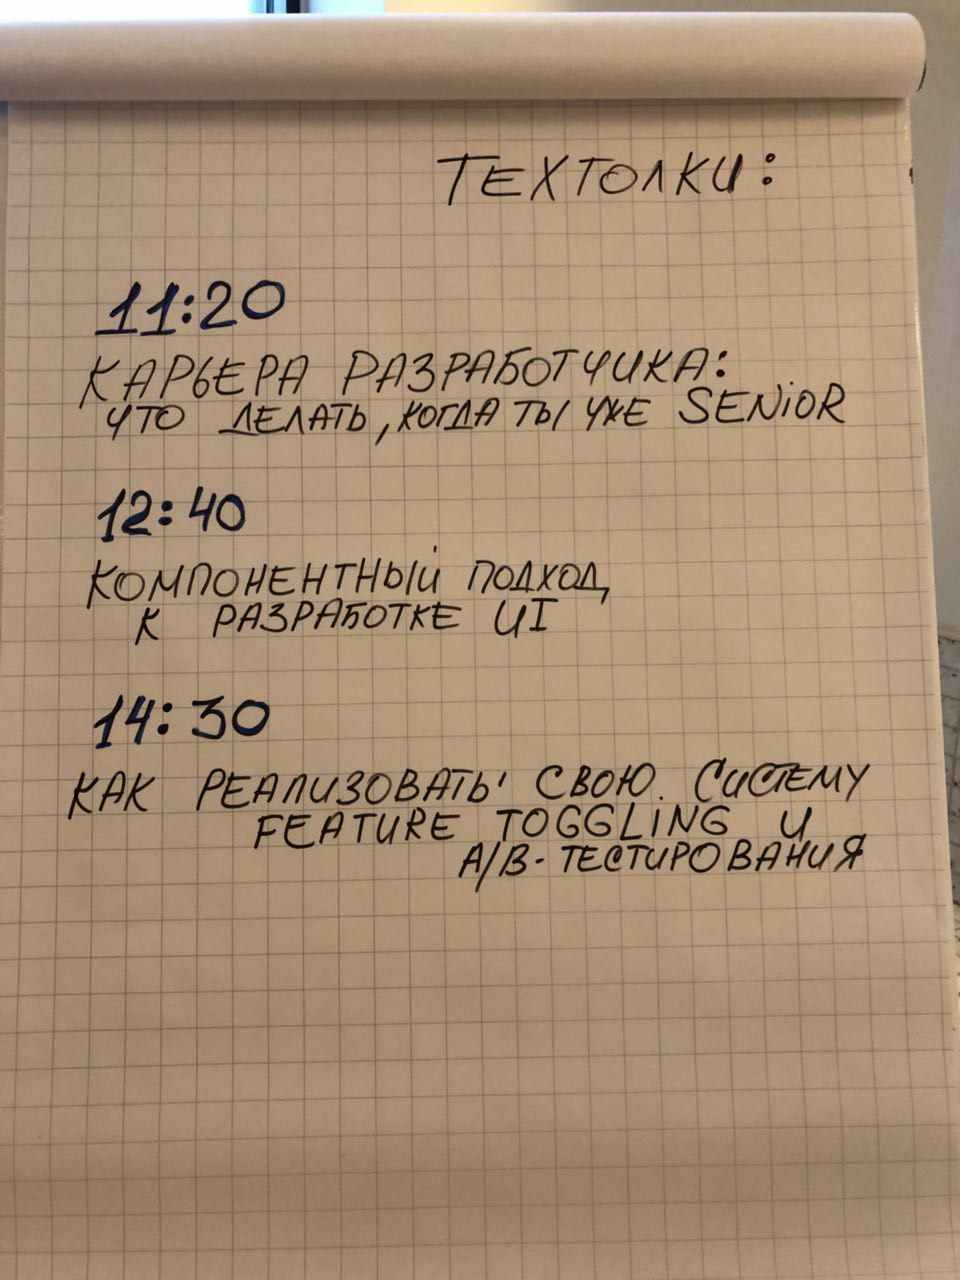 ТЕХТОЛКИ:
11:20
КАРЬЕРА РАЗРАБОТЧИКА:
ЧТО ДЕЛАТЬ, КОГДА ТЫ УЖЕ SENiOR
12:40
КОМПОНЕНТНЫЙ ПОДХОД
К РАЗРАБОТКЕ UI
14:30
КАК РЕАЛИЗОВАТЬ СВОЮ СИСТЕМУ
FEATURE TOGGLiNG И
A/B-ТЕСТИРОВАНИЯ